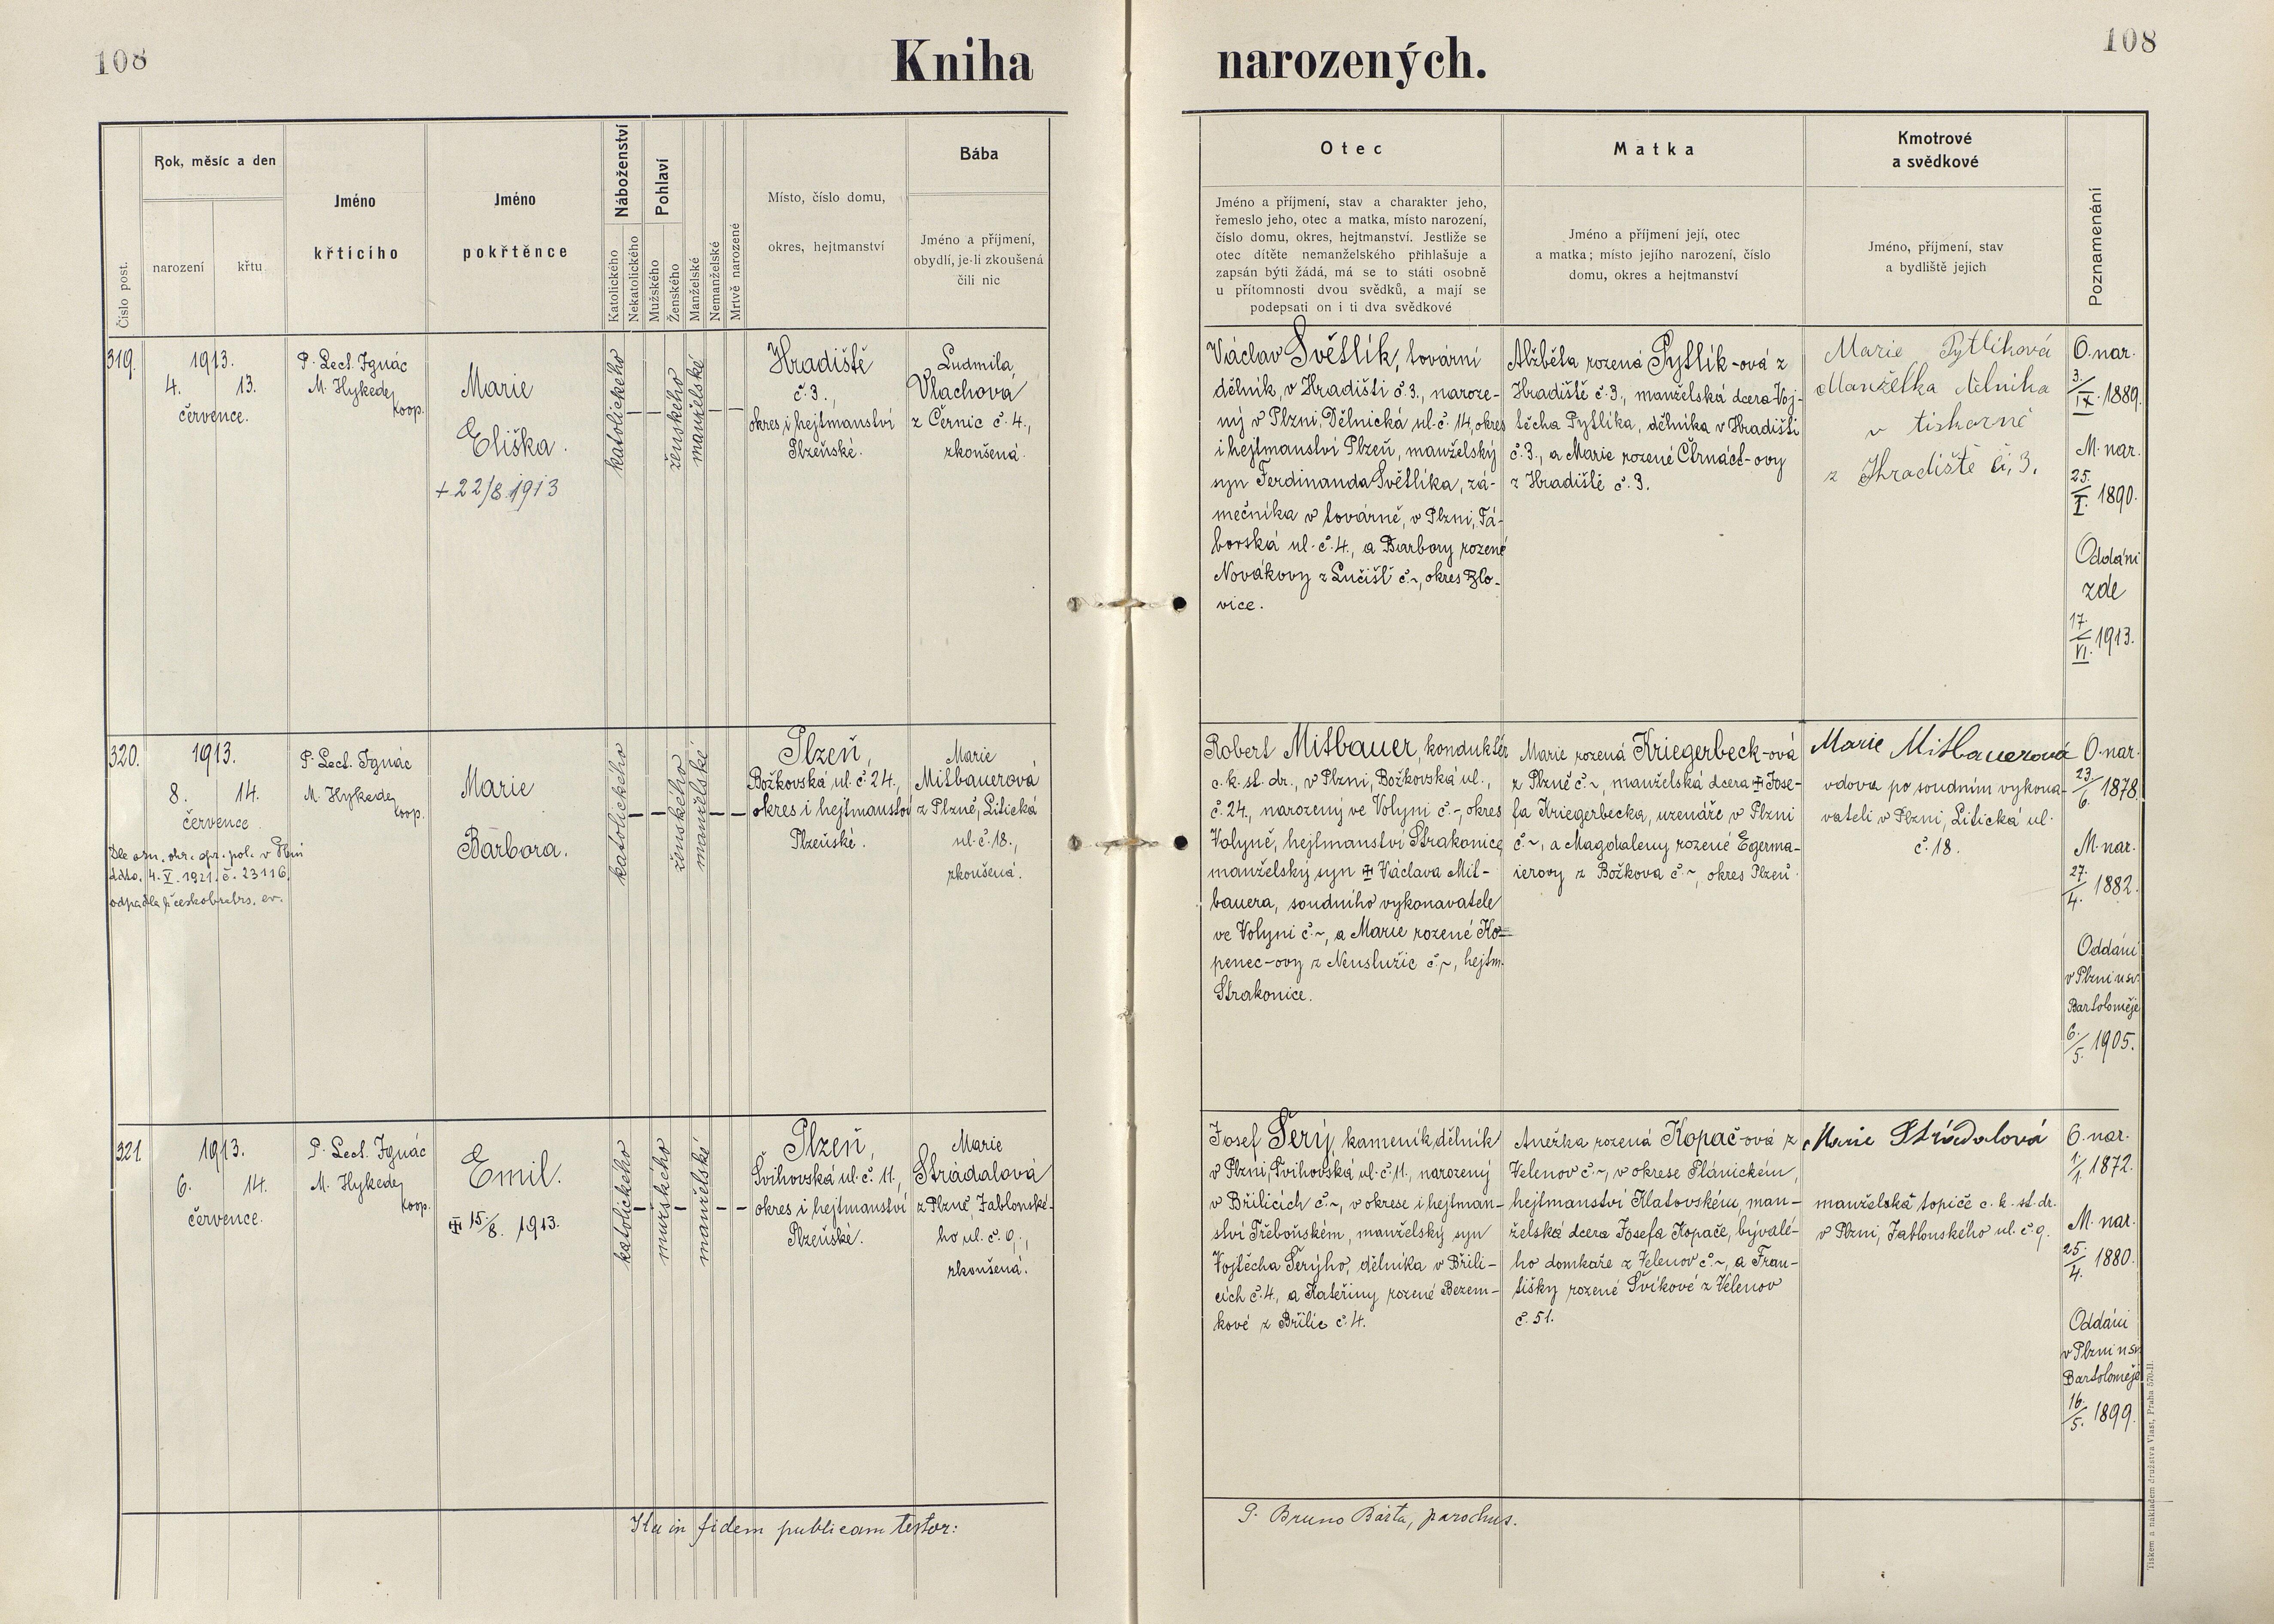 108
Kniha narozených.
108
Číslo post.
Rok, měsíc a den
narození
křtu
Jméno
křtícího
Jméno
pokřtěnce
Náboženství
Katolického
Nekatolického
Pohlaví
Mužského
Ženského
Manželské
Nemanželské
Mrtvě narozené
Místo, číslo domu,
okres, hejtmanství
Bába
Jméno a příjmení,
obydlí, je-li zkoušená
čili nic
Otec
Jméno a příjmení, stav a charakter jeho,
řemeslo jeho, otec a matka, místo narození,
číslo domu, okres, hejtmanství. Jestliže se
otec dítěte nemanželského přihlašuje a
zapsán býti žádá, má se to státi osobně
u přítomnosti dvou svědků, a mají se
podepsati on i ti dva svědkové
Matka
Jméno a příjmení její, otec
a matka; místo jejího narození, číslo
domu, okres a hejtmanství
Kmotrové
a svědkové
Jméno, příjmení, stav
a bydliště jejich
Poznamenání
319.
1913.
4. 13.
července.
P. Lect. Ignác
M. Hykede
koop.
Marie
Eliška.
+ 22/8 1913
katolického
–
–
ženského
manželské
–
–
Hradiště
č. 3.,
okres i hejtmanství
Plzeňské.
Ludmila
Vlachova
z Černic č. 4.,
zkoušená.
Václav Světlík, tovární
dělník, v Hradišti č. 3., naroze-
ný v Plzni, Dělnická ul. č. 14, okres
i hejtmanství Plzeň, manželský
syn Ferdinanda Světlíka, zá-
mečníka v továrně, v Plzni, Tá-
borská ul. č. 4., a Barbory rozené
Novákovy z Lučišť č. ~, okres Blo-
vice.
Alžběta rozená Pytlík-ová z
Hradiště č. 3., manželská dcera Voj-
těcha Pytlíka, dělníka v Hradišti
č. 3., a Marie rozené Čtrnáct-ovy
z Hradiště č. 3.
Marie Pytlíková
Manželka dělníka
v tiskarně
z Hradiště č. 3.
O. nar.
3./IX. 1889.
M. nar.
25./I. 1890.
Oddáni
zde
17./VI. 1913.
320.
1913.
8. 14.
července.
Dle ozn. okr. spr. pol. v Plzni
ddto. 4. V. 1921. č. 23116.
odpadla k českobratrs. ev.
P. Lect. Ignác
M. Hykede
koop.
Marie
Barbora.
katolického
–
–
ženského
manželské
–
–
Plzeň,
Božkovská ul. č. 24.,
okres i hejtmanství
Plzeňské.
Marie
Mitbauerová
z Plzně, Litická
ul. č. 18.,
zkoušená.
Robert Mitbauer, konduktér
c. k. st. dr., v Plzni, Božkovská ul.,
č. 24., narozený ve Volyni č. ~, okres
Volyně, hejtmanství Strakonice,
manželský syn ✠ Václava Mit-
bauera, soudního vykonavatele
ve Volyni č. ~, a Marie rozené Ko-
penec-ovy z Neuslužic č. ~, hejtm.
Strakonice.
Marie rozená Kriegerbeck-ová
z Plzně č. ~, manželská dcera ✠ Jose-
fa Kriegerbecka, uzenáře v Plzni
č. ~, a Magdaleny rozené Egerma-
ierovy z Božkova č. ~, okres Plzeň.
Marie Mitbauerová
vdova po soudním vykona-
vateli v Plzni, Litická ul.
č. 18.
O. nar.
23./6. 1878.
M. nar.
27./4. 1882.
Oddáni
v Plzni u sv.
Bartoloměje
6./5. 1905.
321.
1913.
6. 14.
července.
P. Lect. Ignác
M. Hykede
koop.
Emil.
✠ 15./8. 1913.
katolického
–
mužského
–
manželské
–
–
Plzeň,
Švihovská ul. č. 11.,
okres i hejtmanství
Plzeňské.
Marie
Strádalová
z Plzně, Jablonské-
ho ul. č. 9.,
zkoušená.
Josef Šerý, kameník, dělník
v Plzni, Švihovská ul. č. 11., narozený
v Břilicích č. ~, v okrese i hejtman-
ství Třeboňském, manželský syn
Vojtěcha Šerýho, dělníka v Břili-
cích č. 4., a Kateřiny rozené Bezem-
kové z Břilic č. 4.
Anežka rozená Kopač-ová z
Velenov č. ~, v okrese Plánickém,
hejtmanství Klatovském, man-
želská dcera Josefa Kopače, bývalé-
ho domkaře z Velenov č. ~, a Fran-
tišky rozené Švíkové z Velenov
č. 51.
Marie Strádalová
manželská topiče c. k. st. dr.
v Plzni, Jablonského ul. č. 9.
O. nar.
1./1. 1872.
M. nar.
25./4. 1880.
Oddáni
v Plzni u sv.
Bartoloměje
16./5. 1899.
Ita in fidem publicam testor:
P. Bruno Bárta, parochus.
Tiskem a nákladem družstva Vlast, Praha 570-II.